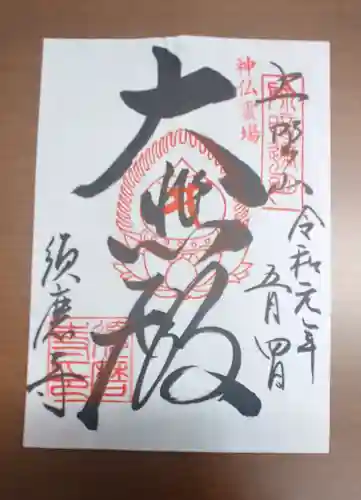 神仏霊場
上野山
令和元年
五月四日
大悲殿
須磨寺